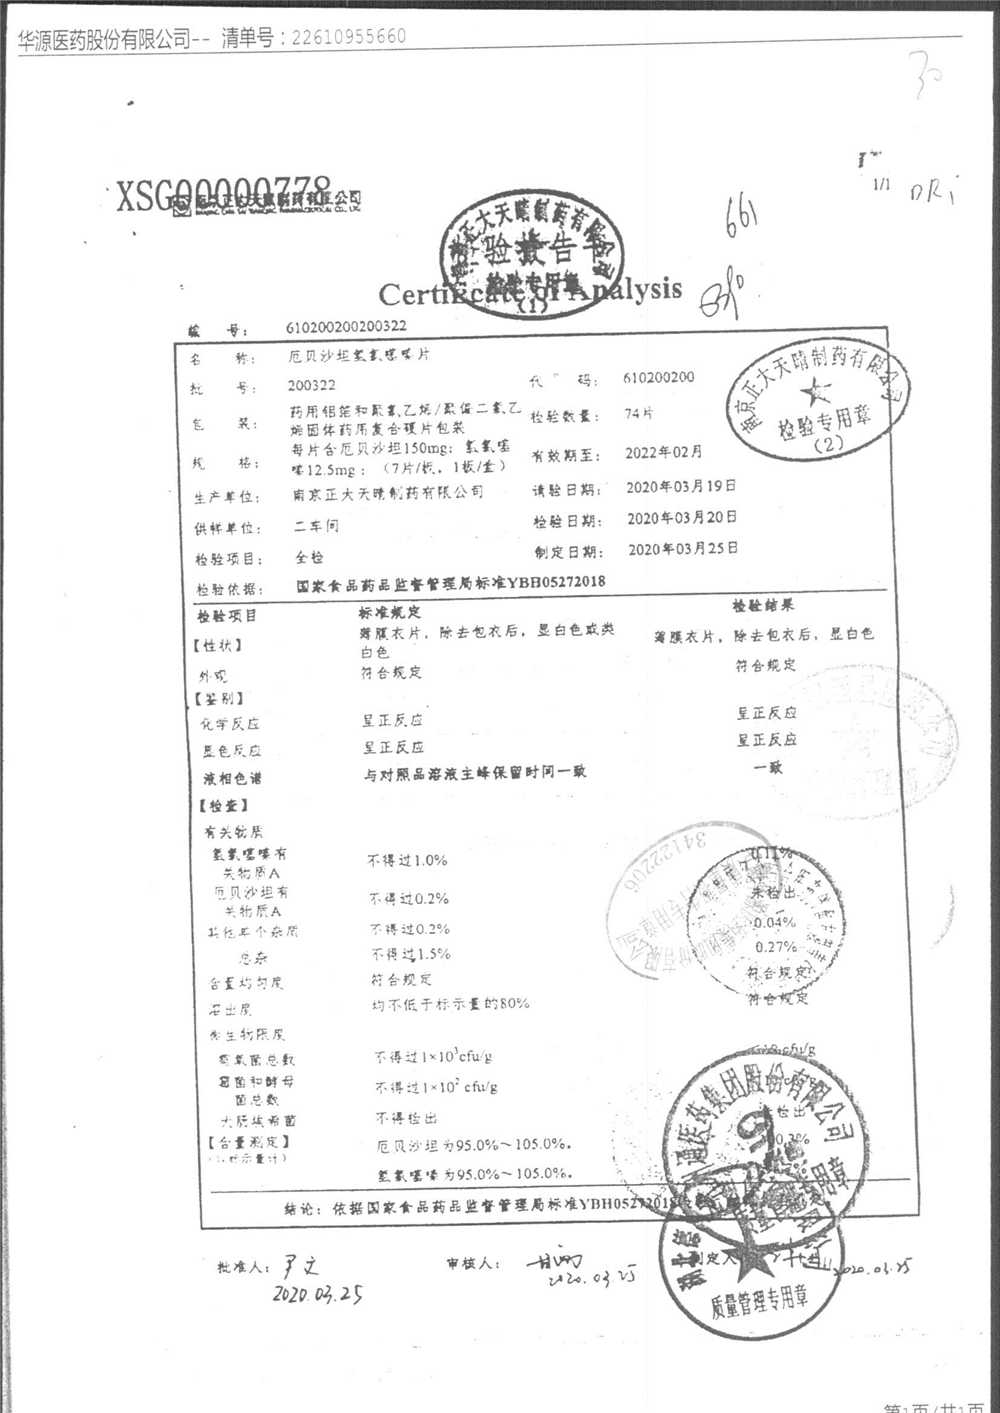 华源医药股份有限公司-- 清单号：22610955660
30
1/1
XSG00000778
南京正大天晴制药有限公司
661
南京正大天晴制药有限公司
检验报告单
检验专用章
(1)
Certificate of Analysis
编 号： 610200200200322
名 称： 厄贝沙坦氢氯噻嗪片
批 号： 200322 代 码： 610200200
包 装： 药用铝箔和聚氯乙烯/聚偏二氯乙烯固体药用复合硬片包装 检验数量： 74片
规 格： 每片含厄贝沙坦150mg；氢氯噻嗪12.5mg；（7片/板，1板/盒） 有效期至： 2022年02月
生产单位： 南京正大天晴制药有限公司 请验日期： 2020年03月19日
供样单位： 二车间 检验日期： 2020年03月20日
检验项目： 全检 制定日期： 2020年03月25日
检验依据： 国家食品药品监督管理局标准YBH05272018
南京正大天晴制药有限公司
检验专用章
(2)
检验项目 标准规定 检验结果
【性状】 薄膜衣片，除去包衣后，显白色或类白色 薄膜衣片，除去包衣后，显白色
外观 符合规定 符合规定
【鉴别】
化学反应 呈正反应 呈正反应
显色反应 呈正反应 呈正反应
液相色谱 与对照品溶液主峰保留时间一致 一致
【检查】
有关物质
氢氯噻嗪有关物质A 不得过1.0% 0.11%
厄贝沙坦有关物质A 不得过0.2% 未检出
其他单个杂质 不得过0.2% 0.04%
总杂 不得过1.5% 0.27%
含量均匀度 符合规定 符合规定
溶出度 均不低于标示量的80% 符合规定
微生物限度
需氧菌总数 不得过1×10³cfu/g cfu/g
霉菌和酵母菌总数 不得过1×10² cfu/g
大肠埃希菌 不得检出 未检出
【含量测定】 厄贝沙坦为95.0%～105.0%。
氢氯噻嗪为95.0%～105.0%。
结论：依据国家食品药品监督管理局标准YBH05272018
34122206
通医药集团股份有限公司
质量管理专用章
批准人： 尹文 审核人： 制定人
2020.03.25 2020.03.25 2020.03.25
第1页/共1页